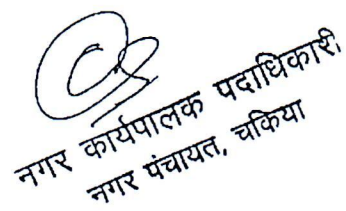 नगर कार्यपालक पदाधिकारी
नगर पंचायत, चकिया